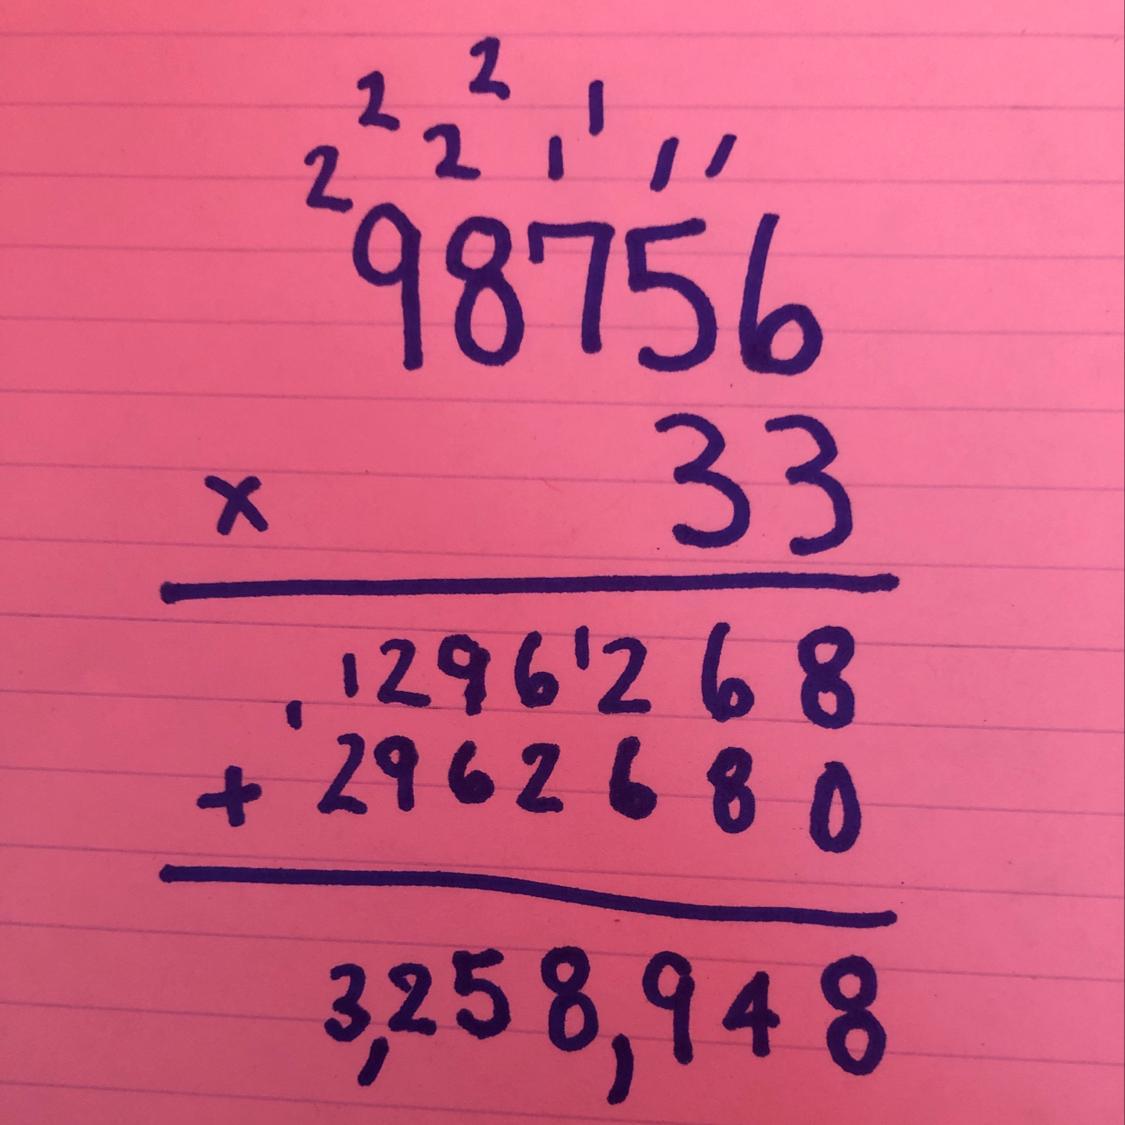 2 2 1
2 2 1 1 1
98756
x 33
1 1 296 1 268
+ 2962680
3,258,948